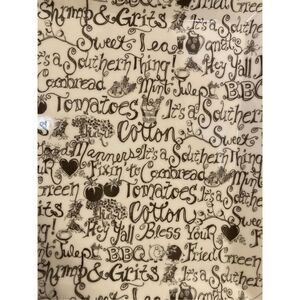 Shrimp & Grits It's a
Sweet Tea
It's a Hey Y'all
Southern Thing!
Cornbread Mint Julep BBQ
Tomatoes It's a Southern
Cotton
Manners It's a Southern Thing
Fixin to Cornbread
Green Tomatoes It's a Southern
Cotton
Hey Y'all Bless Your
Mint Julep BBQ Fried Green
Shrimp & Grits It's a